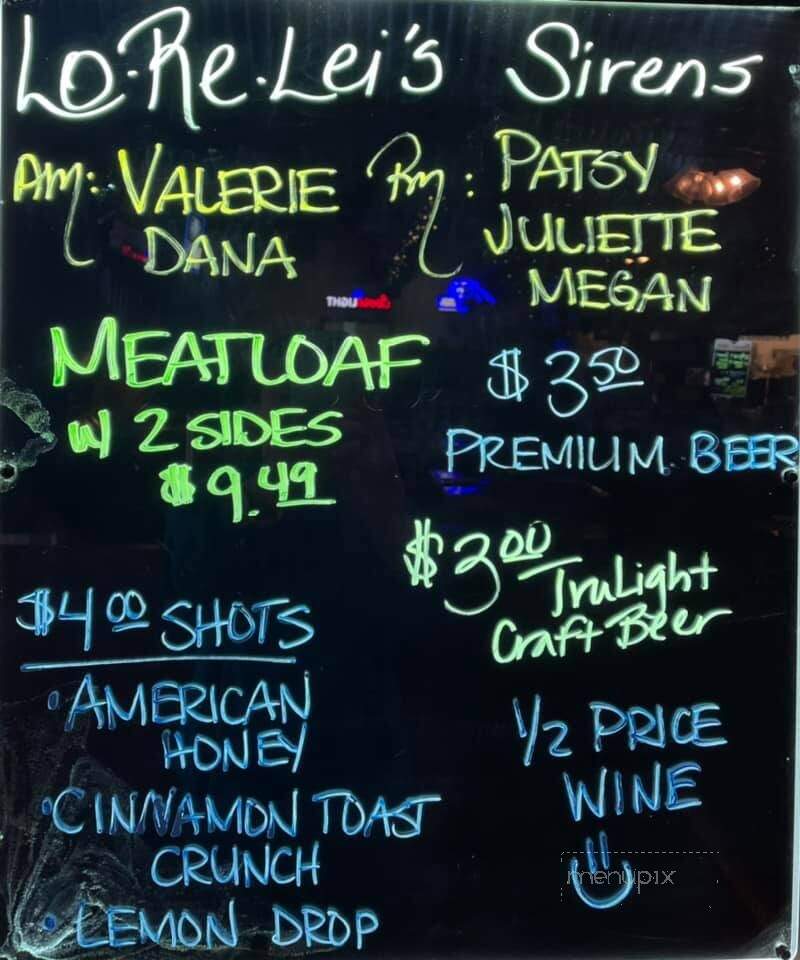 Lo·Re·Lei's Sirens
AM: VALERIE
DANA
PM: PATSY
JULIETTE
MEGAN
MEATLOAF
w/ 2 SIDES
$9.49
$3.50
PREMIUM BEER
$3.00
TruLight
Craft Beer
$4.00 SHOTS
• AMERICAN
HONEY
• CINNAMON TOAST
CRUNCH
• LEMON DROP
1/2 PRICE
WINE
menupix